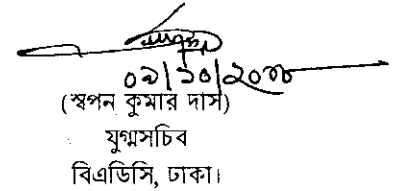 ০২/১০/২০০৮
(স্বপন কুমার দাস)
যুগ্মসচিব
বিএডিসি, ঢাকা।